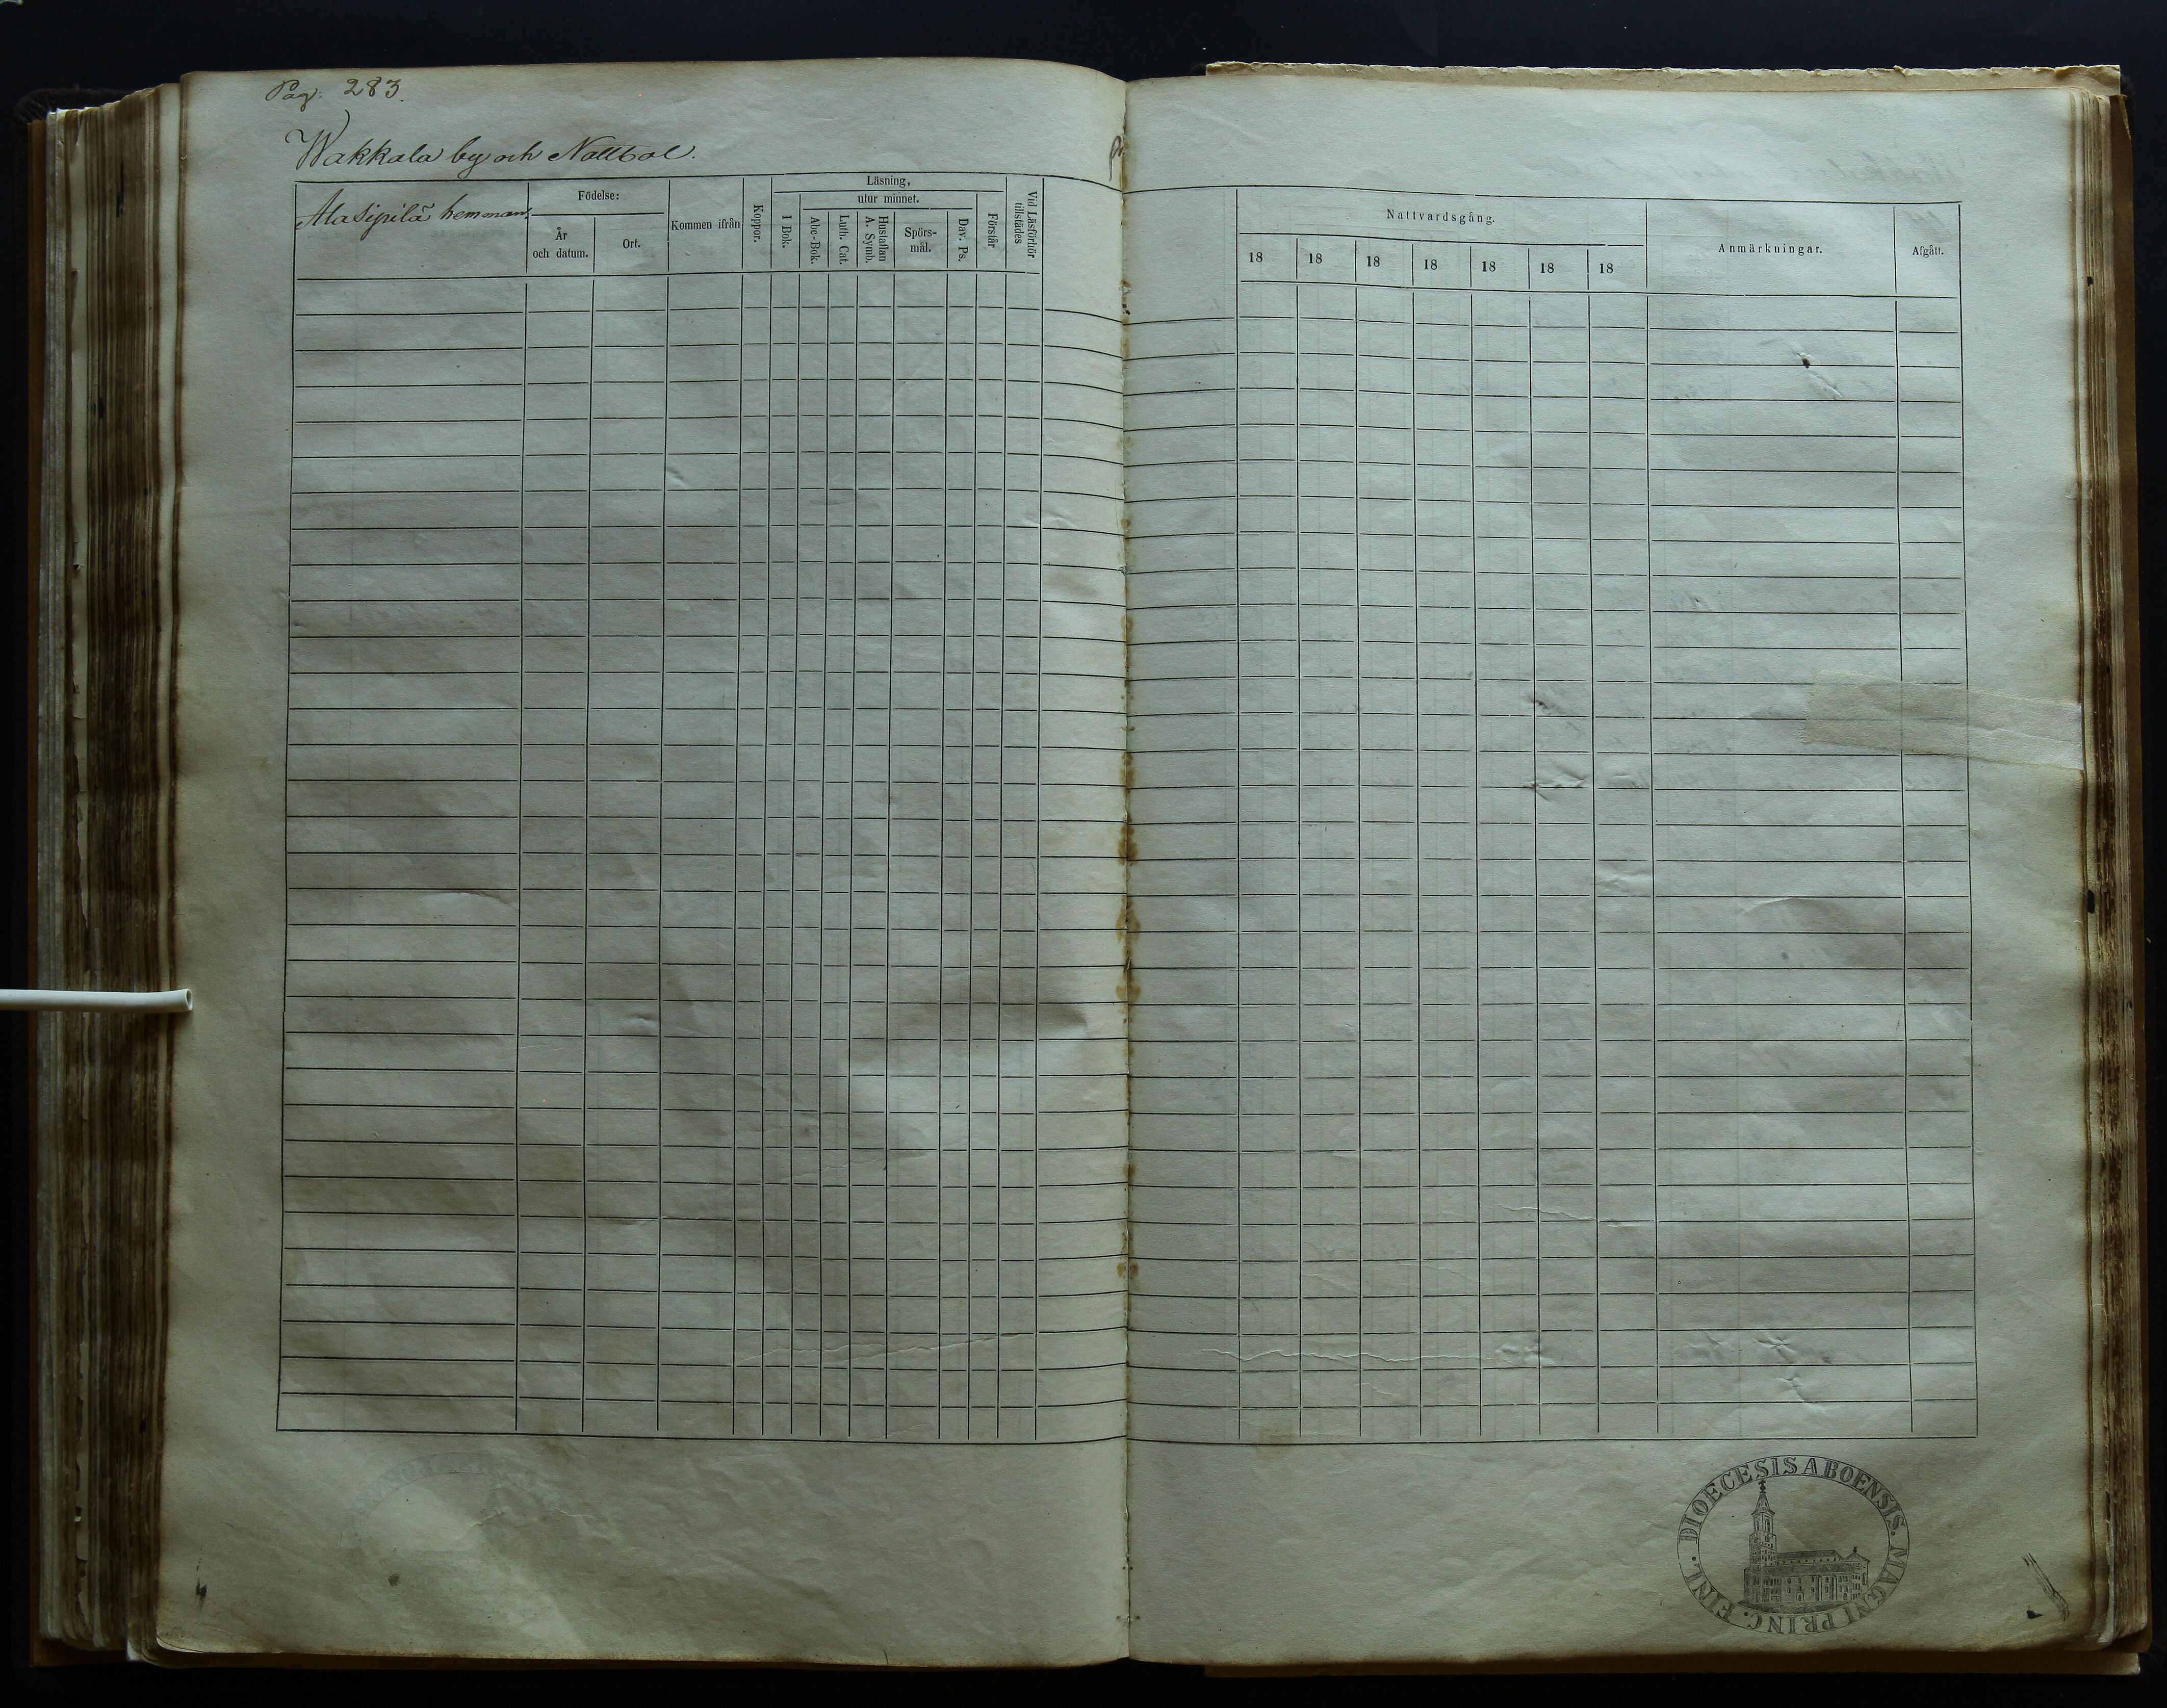 Pag. 283.
Wakkala by och Nallbol.
Alasipilä hemman.
Födelse:
År och datum.
Ort.
Kommen ifrån
Koppor.
Läsning,
I Bok.
utur minnet.
Abc-Bok.
Luth. Cat.
Hustaflan A. Symb.
Spörs-mål.
Dav. Ps.
Förstår
Vid Läsförhör tillstädes
Nattvardsgång.
18 18 18 18 18 18 18
Anmärkningar.
Afgått.
DIOECESIS ABOENSIS. MAGNI PRINC. FINL.